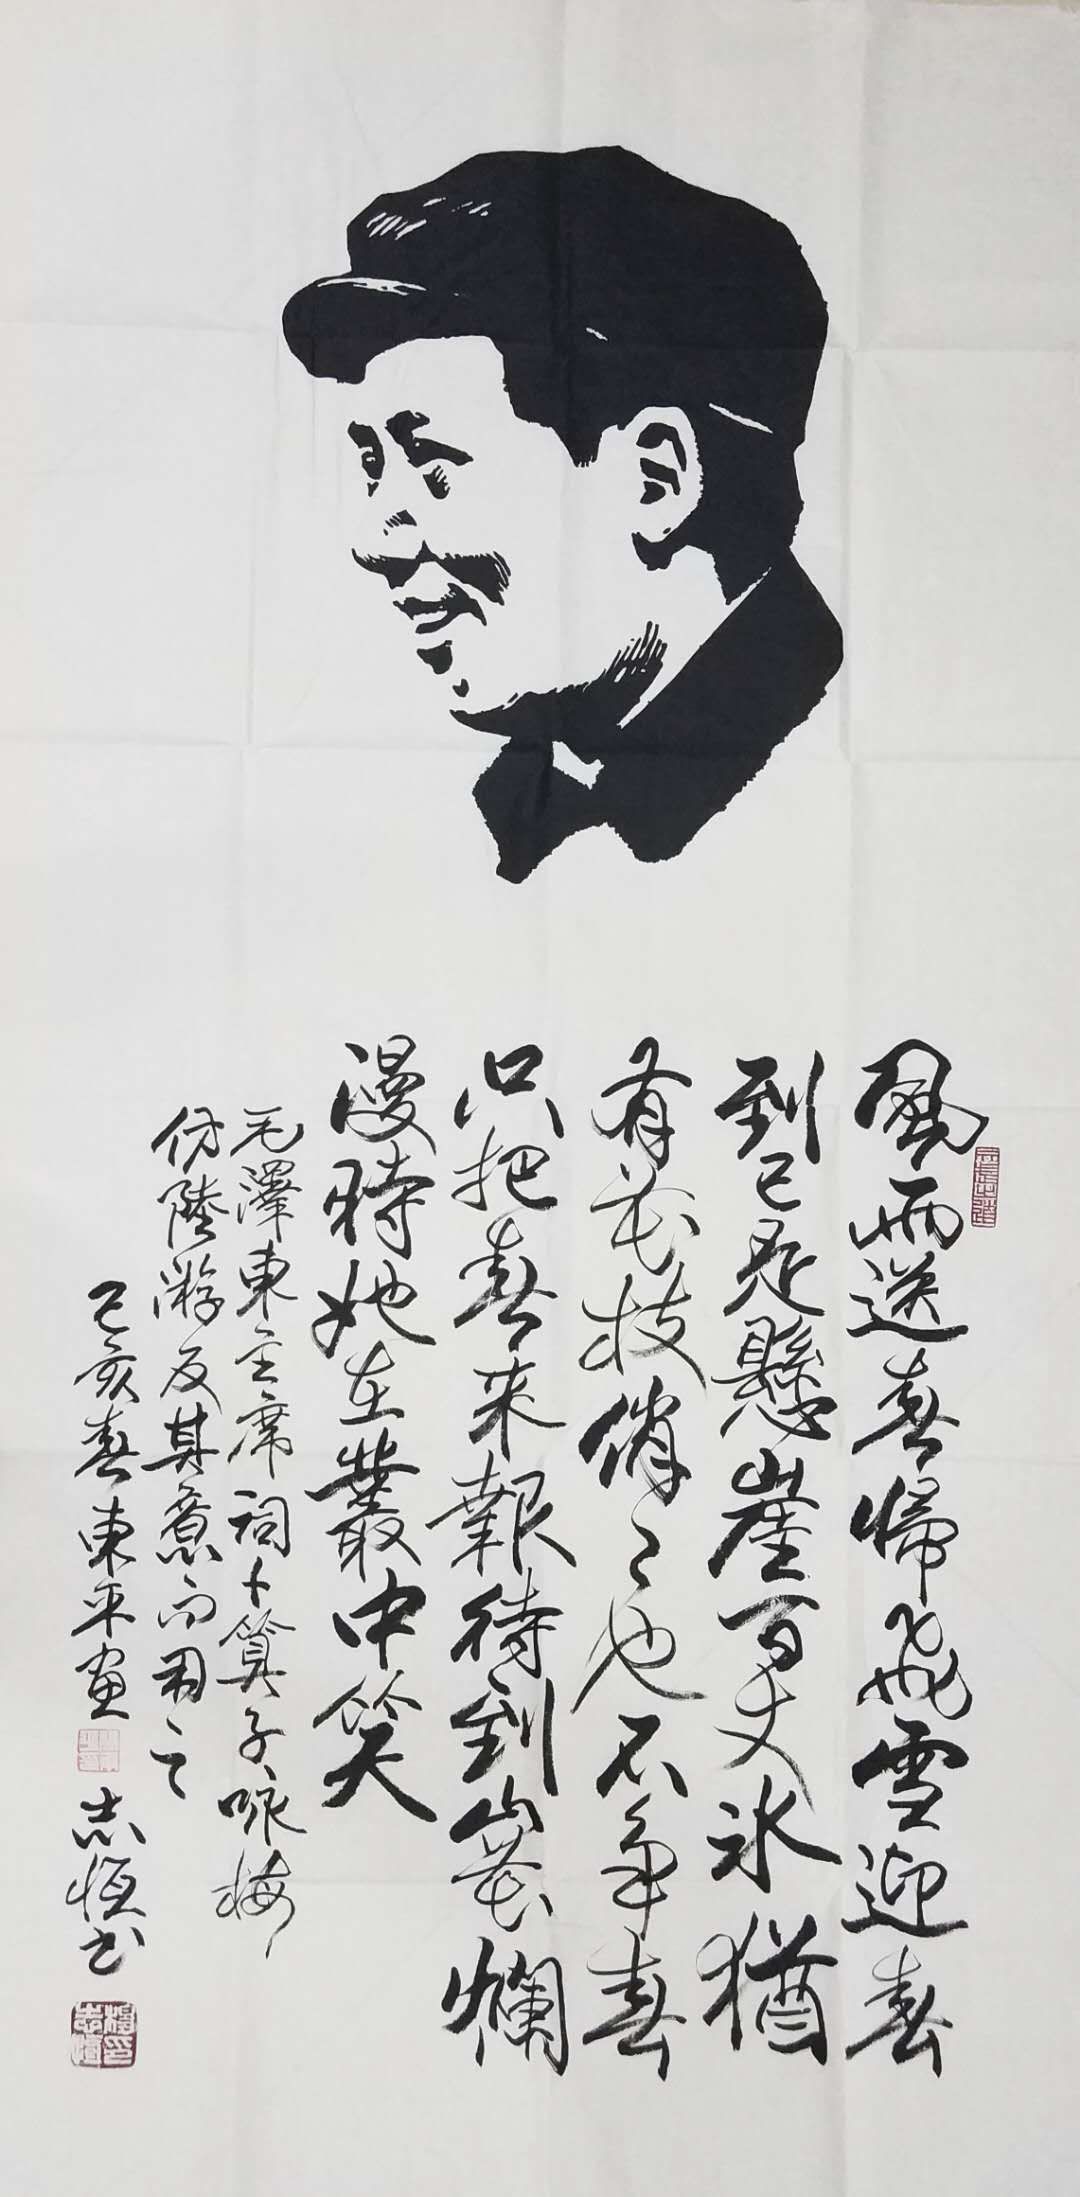 風雨送春歸飛雪迎春
到已是懸崖百丈冰猶
有花枝俏〻也不争春
只把春来報待到山花爛
漫時她在叢中笑
毛澤東主席詞卜算子咏梅
仿陸游反其意而用之
己亥春東平画
志恒书